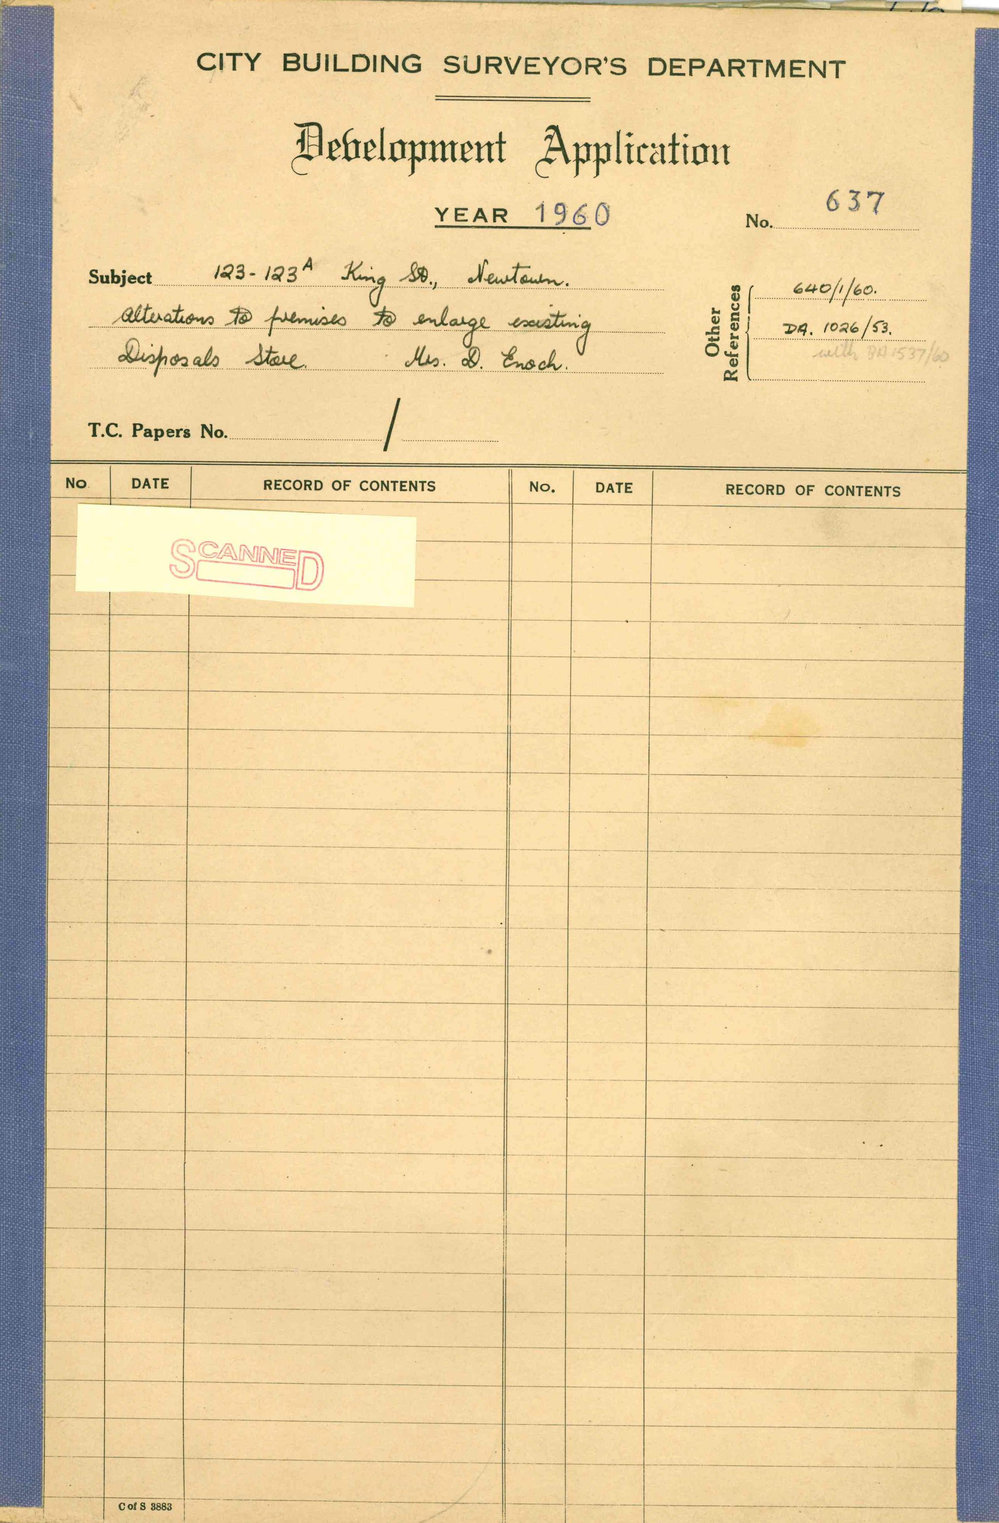 CITY BUILDING SURVEYOR'S DEPARTMENT
Development Application
YEAR 1960
No. 637
Subject 123-123A King St., Newtown.
Alterations to premises to enlarge existing
Disposals Store. Mrs. D. Enoch.
Other References
640/1/60.
DA. 1026/53.
with DA 1537/60
T.C. Papers No. /
No DATE RECORD OF CONTENTS No. DATE RECORD OF CONTENTS
SCANNED
C of S 3883